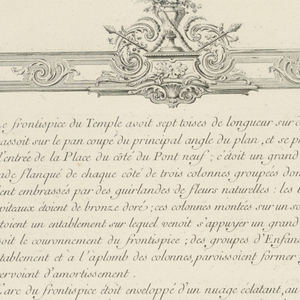 e frontispice du Temple avoit sept toises de longueur sur
assoit sur le pan coupé du principal angle du plan, et se p
l'entrée de la Place du côté du Pont neuf; c'étoit un grand
ade flanqué de chaque côté de trois colonnes groupées don
ent embrassés par des guirlandes de fleurs naturelles: les
piteaux étoient de bronze doré; ces colonnes montées sur un so
toient un entablement sur lequel venoit s'appuyer un grand
oit le couronnement du frontispice; des groupes d'Enfan
tablement et a l'àplomb des colonnes, paroissoient former
ervoient d'amortissement.
L'arc du frontispice étoit enveloppé d'un nuage éclatant, au